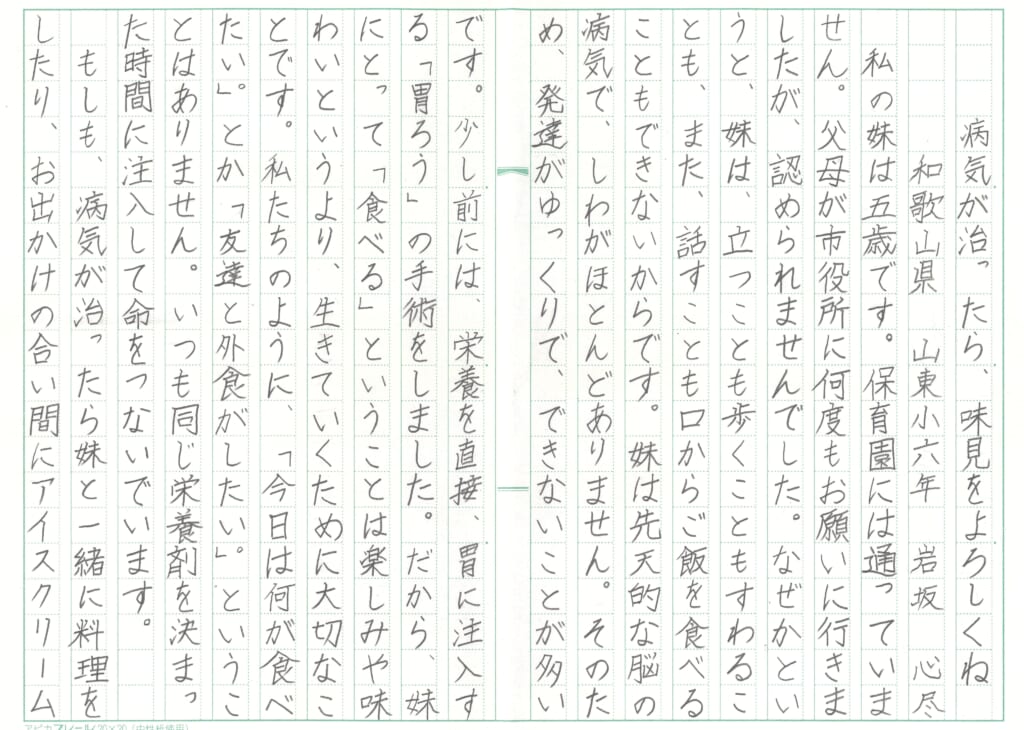 病気が治ったら、味見をよろしくね
和歌山県　山東小六年　岩坂　心尽
私の妹は五歳です。保育園には通っていま
せん。父母が市役所に何度もお願いに行きま
したが、認められませんでした。なぜかとい
うと、妹は、立つことも歩くこともすわるこ
とも、また、話すことも口からご飯を食べる
こともできないからです。妹は先天的な脳の
病気で、しわがほとんどありません。そのた
め、発達がゆっくりで、できないことが多い
です。少し前には、栄養を直接、胃に注入す
る「胃ろう」の手術をしました。だから、妹
にとって「食べる」ということは楽しみや味
わいというより、生きていくために大切なこ
とです。私たちのように、「今日は何が食べ
たい」。とか「友達と外食がしたい」。というこ
とはありません。いつも同じ栄養剤を決まっ
た時間に注入して命をつないでいます。
もしも、病気が治ったら妹と一緒に料理を
したり、お出かけの合い間にアイスクリーム